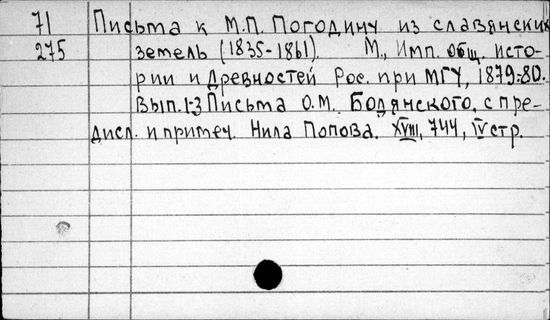 71 Письма к М.П. Погодину из славянских
275 земель (1835-1861). М., Имп. общ. исто-
рии и древностей Рос. при МГУ, 1879-80.
Вып. 1-3 Письма О.М. Бодянского, с пре-
дисл. и примеч. Нила Попова. XVIII, 744, IV стр.